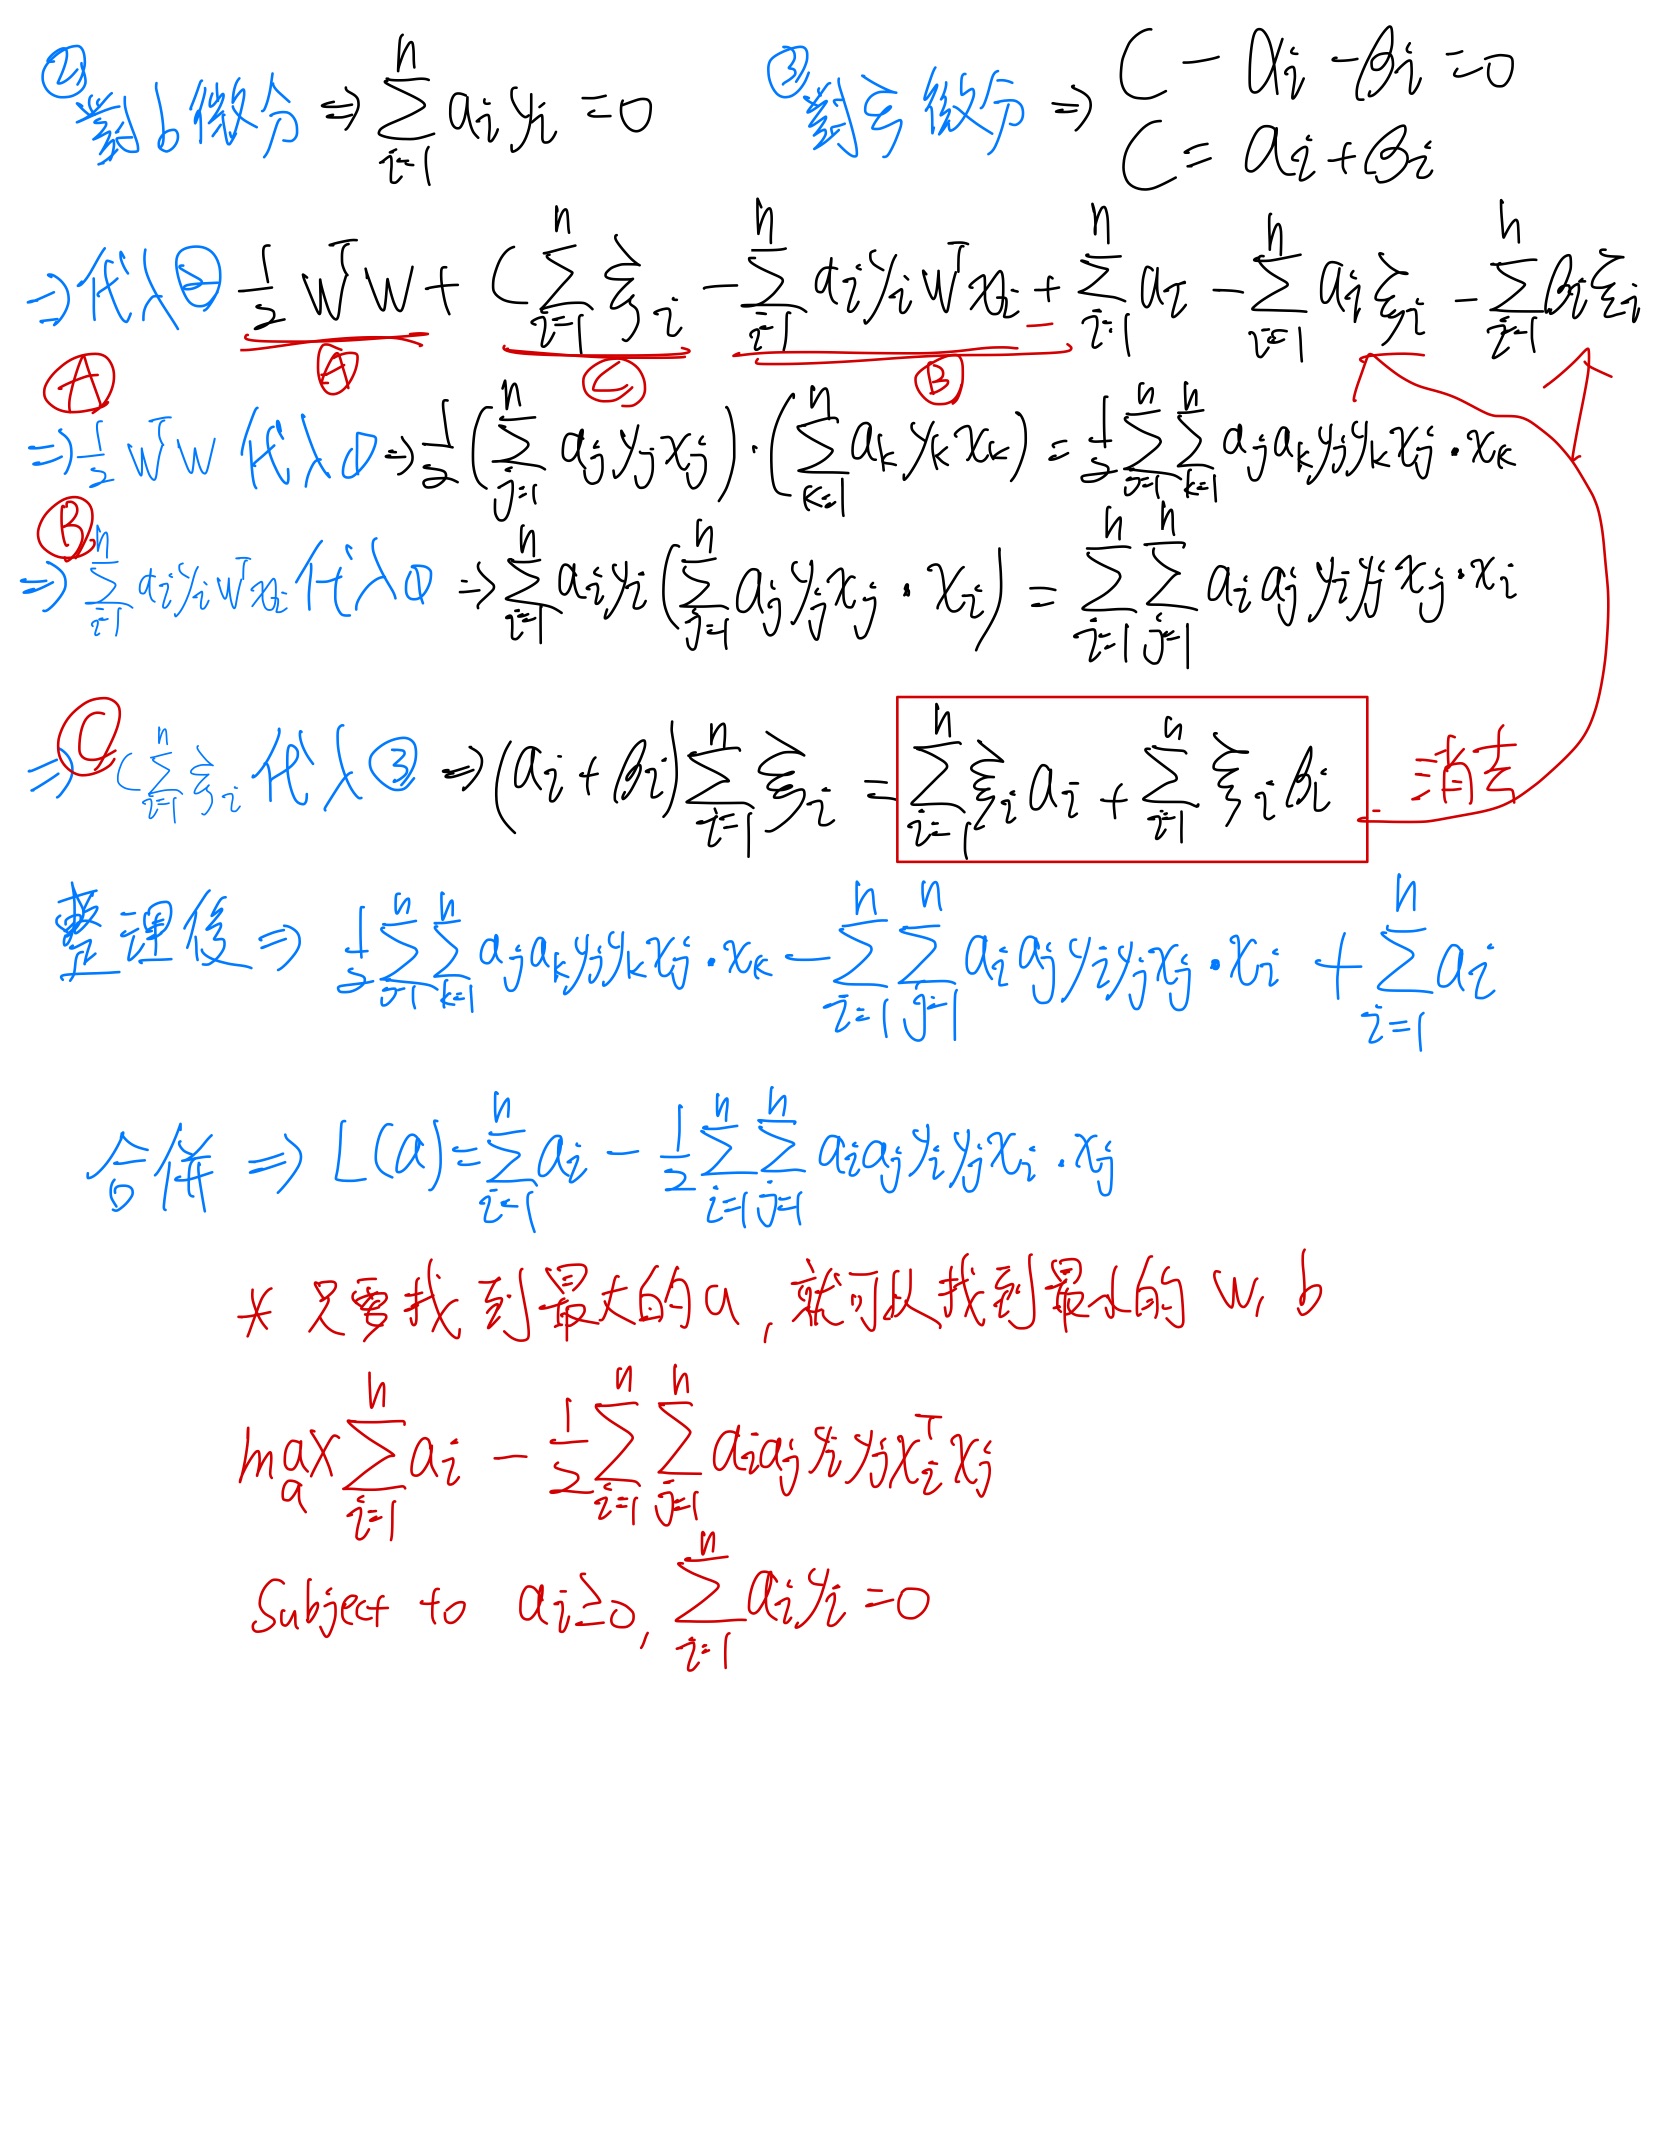 ② 對b微分 ⇒ \sum_{i=1}^{n} a_i y_i = 0  ③ 對ξ微分 ⇒ C - α_i - β_i = 0
C = a_i + β_i
⇒ 代入② \frac{1}{2} W^T W + C \sum_{i=1}^{n} ξ_i - \sum_{i=1}^{n} a_i y_i W^T x_i + \sum_{i=1}^{n} a_i - \sum_{i=1}^{n} a_i ξ_i - \sum_{i=1}^{n} β_i ξ_i
Ⓐ Ⓒ Ⓑ
Ⓐ ⇒ \frac{1}{2} W^T W 代入① ⇒ \frac{1}{2} (\sum_{j=1}^{n} a_j y_j x_j) · (\sum_{k=1}^{n} a_k y_k x_k) = \frac{1}{2} \sum_{j=1}^{n} \sum_{k=1}^{n} a_j a_k y_j y_k x_j · x_k
Ⓑ ⇒ \sum_{i=1}^{n} a_i y_i W^T x_i 代入① ⇒ \sum_{i=1}^{n} a_i y_i (\sum_{j=1}^{n} a_j y_j x_j · x_i) = \sum_{i=1}^{n} \sum_{j=1}^{n} a_i a_j y_i y_j x_j · x_i
Ⓒ ⇒ C \sum_{i=1}^{n} ξ_i 代入③ ⇒ (a_i + β_i) \sum_{i=1}^{n} ξ_i = \sum_{i=1}^{n} ξ_i a_i + \sum_{i=1}^{n} ξ_i β_i 消去
整理後 ⇒ \frac{1}{2} \sum_{j=1}^{n} \sum_{k=1}^{n} a_j a_k y_j y_k x_j · x_k - \sum_{i=1}^{n} \sum_{j=1}^{n} a_i a_j y_i y_j x_j · x_i + \sum_{i=1}^{n} a_i
合併 ⇒ L(a) = \sum_{i=1}^{n} a_i - \frac{1}{2} \sum_{i=1}^{n} \sum_{j=1}^{n} a_i a_j y_i y_j x_i · x_j
* 只要找到最大的a, 就可以找到最小的 w, b
\max_{a} \sum_{i=1}^{n} a_i - \frac{1}{2} \sum_{i=1}^{n} \sum_{j=1}^{n} a_i a_j y_i y_j x_i^T x_j
Subject to a_i ≥ 0, \sum_{i=1}^{n} a_i y_i = 0